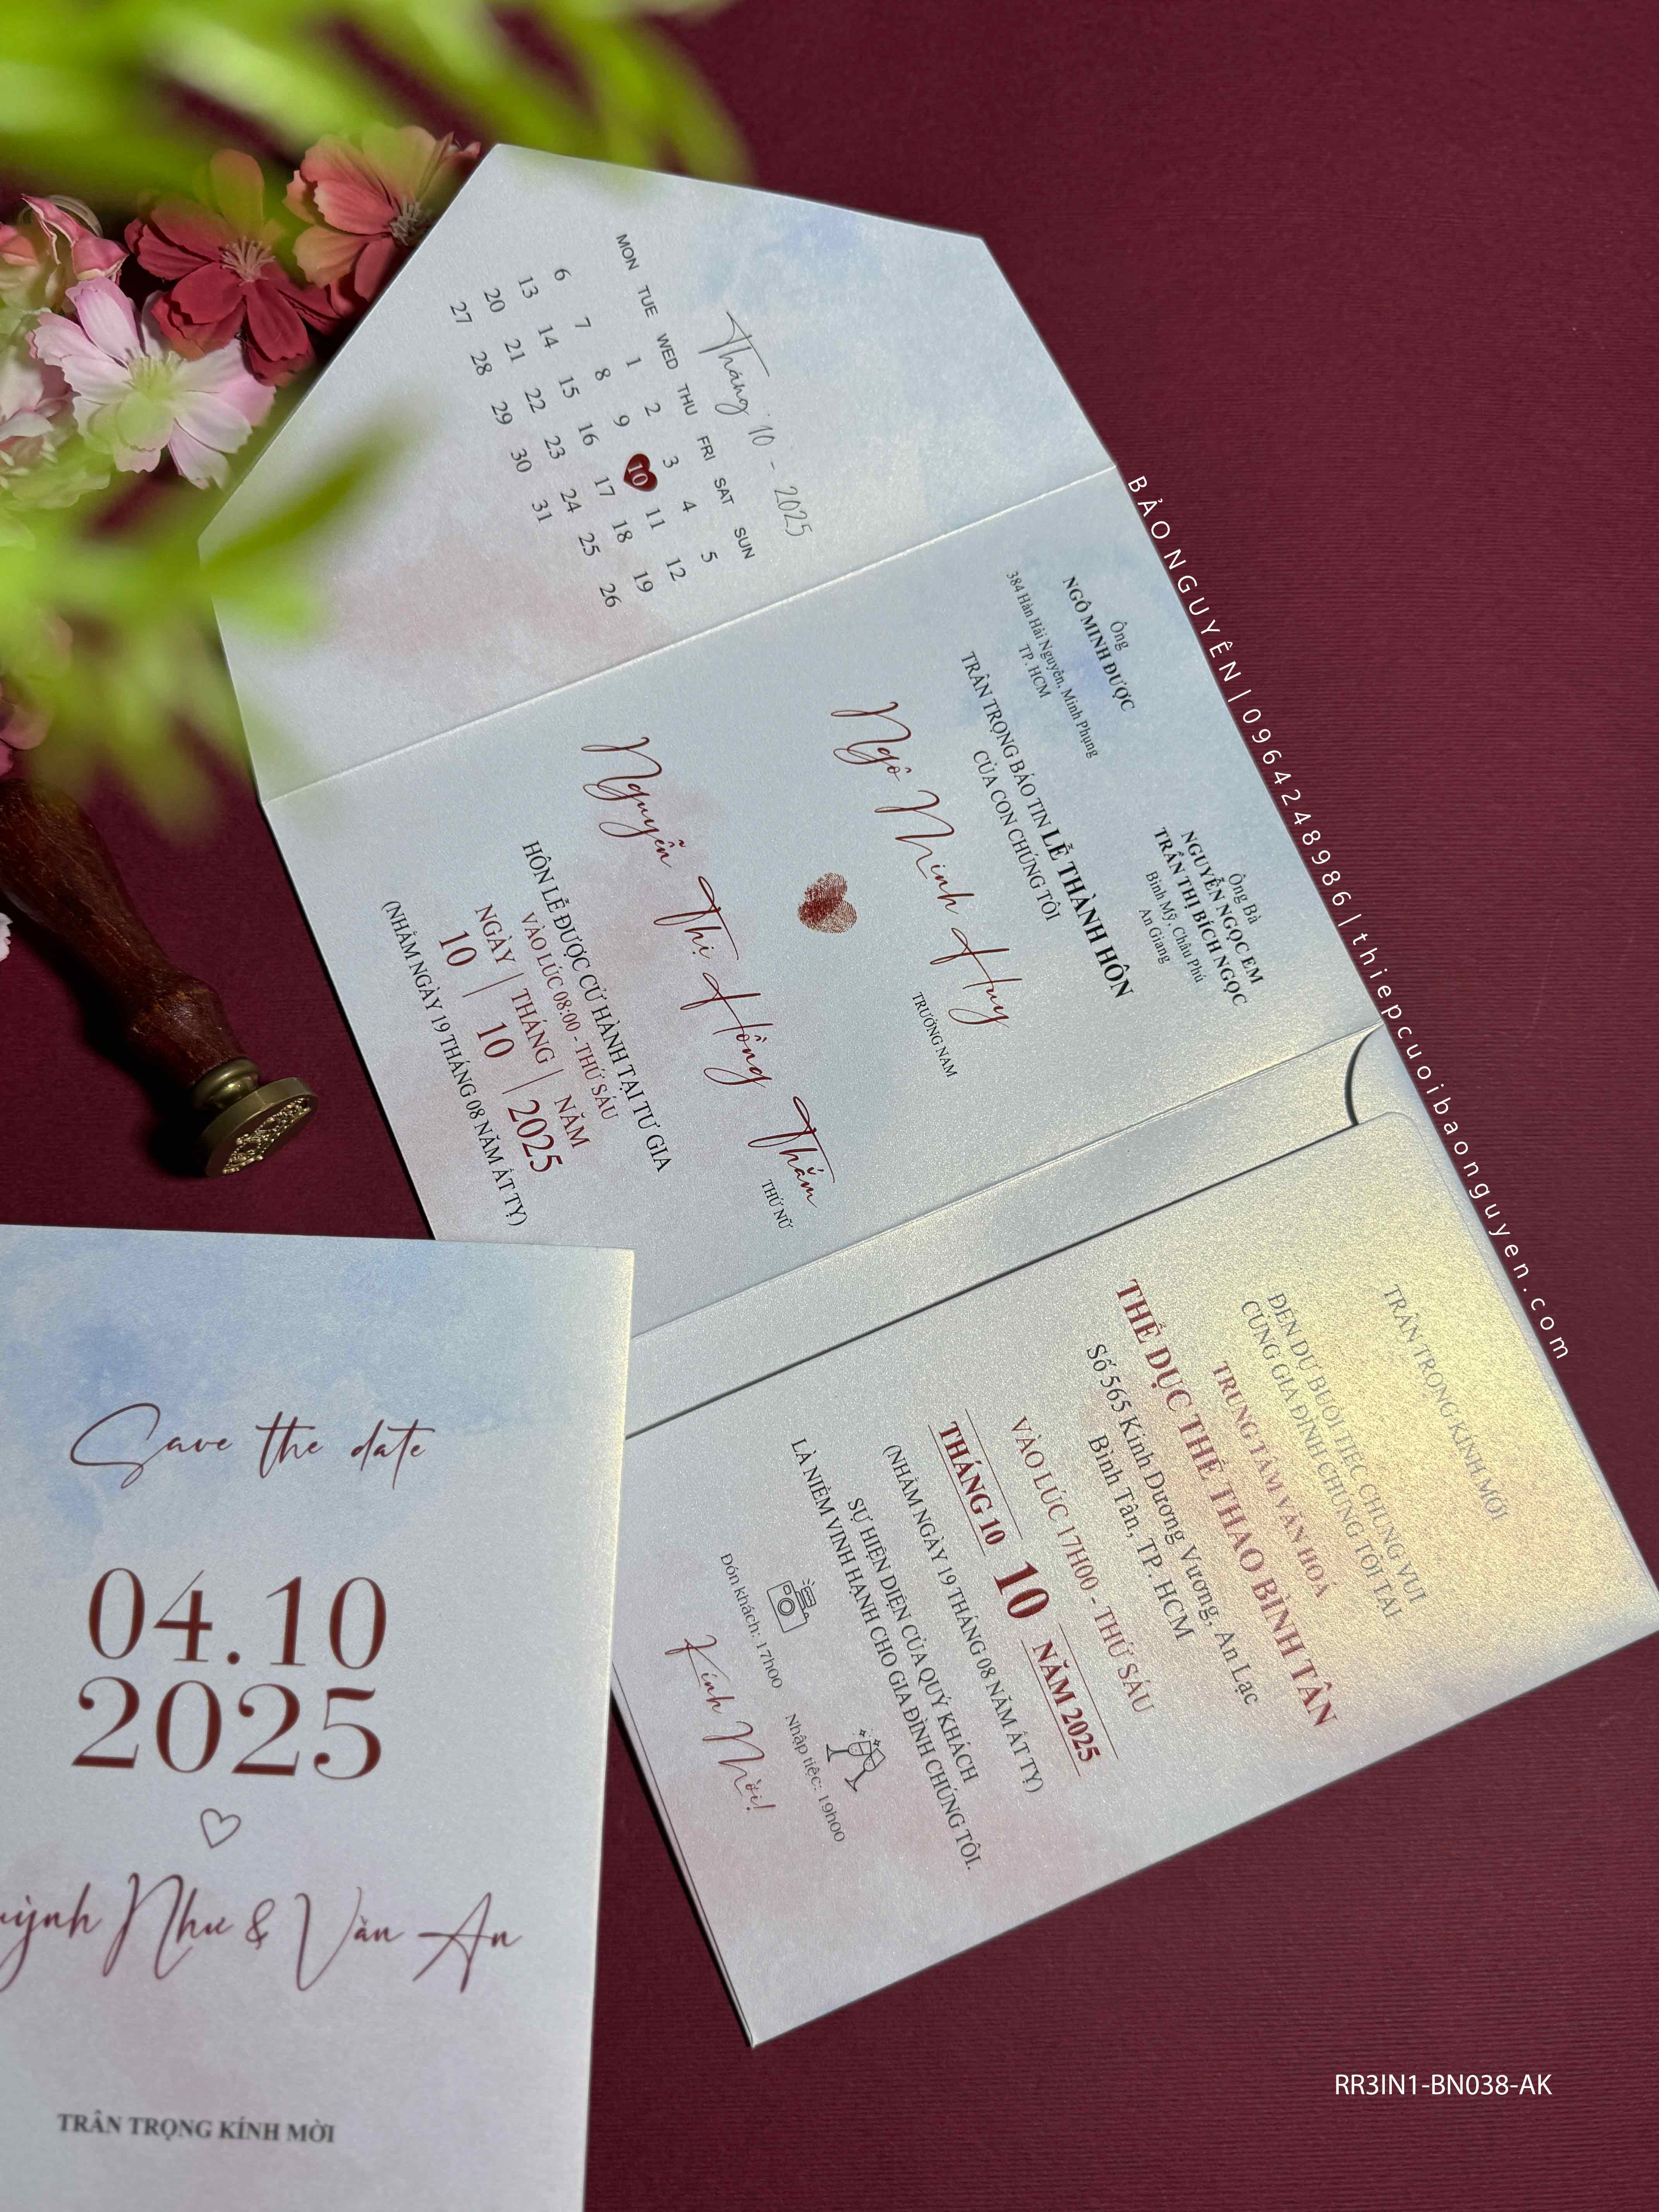 Tháng 10 - 2025
MON TUE WED THU FRI SAT SUN
1 2 3 4 5
6 7 8 9 10 11 12
13 14 15 16 17 18 19
20 21 22 23 24 25 26
27 28 29 30 31
Ông
NGÔ MINH ĐƯỢC
384 Hàn Hải Nguyên, Minh Phụng
TP. HCM
Ông Bà
NGUYỄN NGỌC EM
TRẦN THỊ BÍCH NGỌC
Bình Mỹ, Châu Phú
An Giang
TRÂN TRỌNG BÁO TIN LỄ THÀNH HÔN
CỦA CON CHÚNG TÔI
Ngô Minh Huy
TRƯỞNG NAM
Nguyễn Thị Hồng Thắm
THỨ NỮ
HÔN LỄ ĐƯỢC CỬ HÀNH TẠI TƯ GIA
VÀO LÚC 08:00 - THỨ SÁU
NGÀY | THÁNG | NĂM
10 | 10 | 2025
(NHẰM NGÀY 19 THÁNG 08 NĂM ẤT TỴ)
TRÂN TRỌNG KÍNH MỜI
ĐẾN DỰ BUỔI TIỆC CHUNG VUI
CÙNG GIA ĐÌNH CHÚNG TÔI TẠI
TRUNG TÂM VĂN HOÁ
THỂ DỤC THỂ THAO BÌNH TÂN
Số 565 Kinh Dương Vương, An Lạc
Bình Tân, TP. HCM
VÀO LÚC 17H00 - THỨ SÁU
THÁNG 10 10 NĂM 2025
(NHẰM NGÀY 19 THÁNG 08 NĂM ẤT TỴ)
SỰ HIỆN DIỆN CỦA QUÝ KHÁCH
LÀ NIỀM VINH HẠNH CHO GIA ĐÌNH CHÚNG TÔI.
Đón khách: 17h00
Nhập tiệc: 19h00
Kính Mời!
Save the date
04.10
2025
uỳnh Như & Văn An
TRÂN TRỌNG KÍNH MỜI
BẢO NGUYÊN | 0964248986 | thiepcuoibaonguyen.com
RR3IN1-BN038-AK